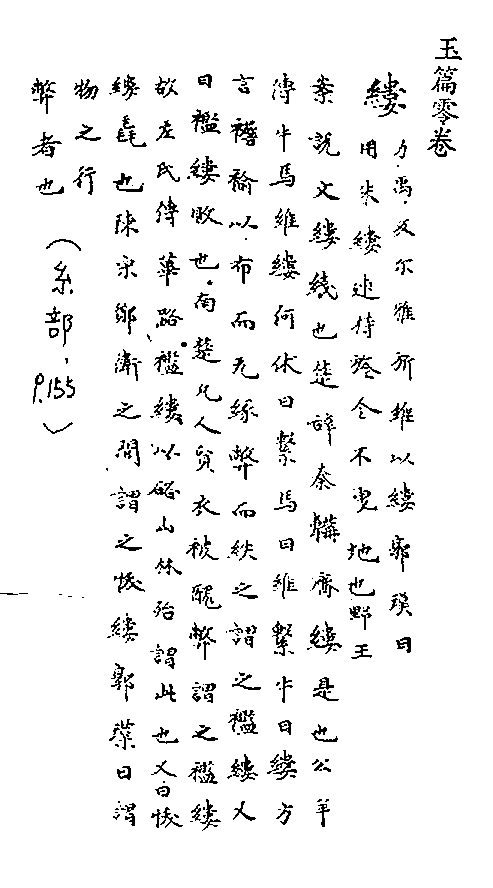 玉篇零卷
縷 力禹反尔雅所維以縷郭璞曰
用朱縷連持旒令不曳地也野王
案說文縷綫也楚辞秦篝齊縷是也公羊
傳牛馬維縷何休曰繫馬曰維繫牛曰縷方
言襜褕以布而无緣弊而紩之謂之襤縷又
曰襤縷敗也南楚凡人貧衣被醜弊謂之襤縷
故左氏傳蓽路襤縷以啓山林殆謂此也又曰
縷毳也陳宋鄭衛之間謂之縷郭璞曰謂
物之行
弊者也 (糸部,P.155)